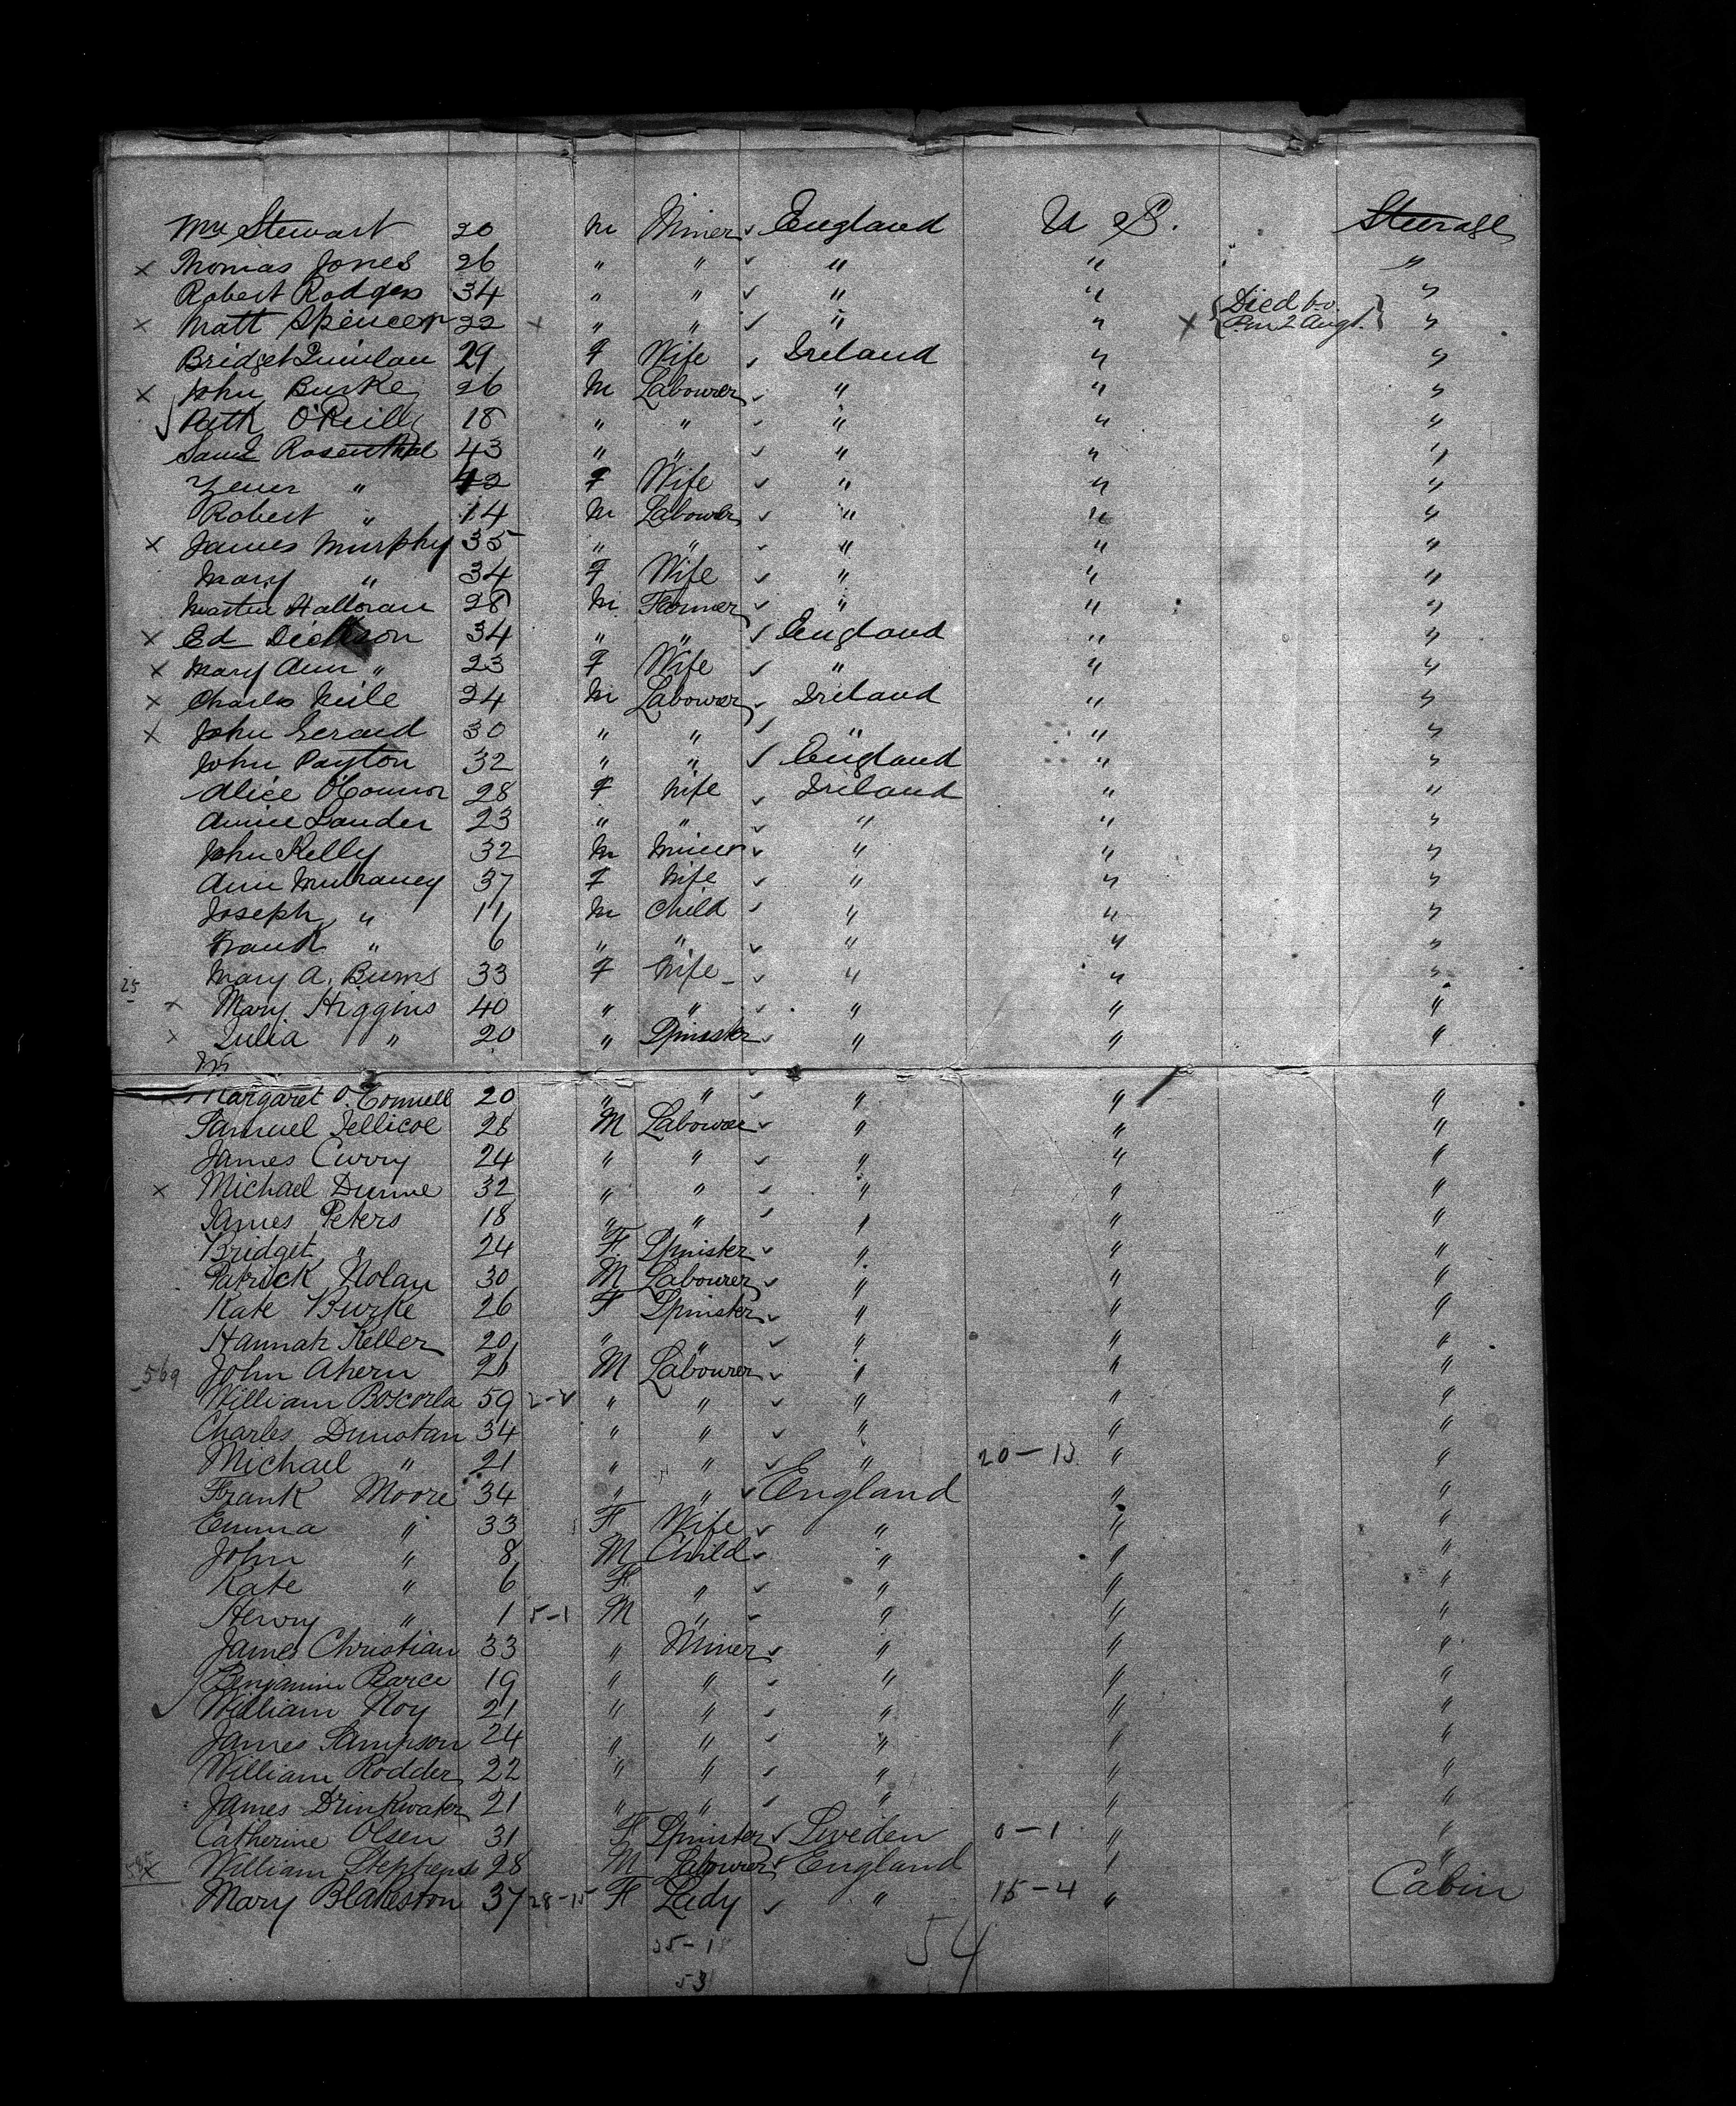 Wm Stewart 20 m Miner England U S. Steerage
x Thomas Jones 26 " " " " "
Robert Rodgers 34 " " " " "
x Matt Spencer 22 x " " " " x { Died 6.0. P.m 2 Augt. } "
Bridget Quinlan 29 F Wife Ireland " "
x John Burke 26 M Labourer " " "
Patk O'Reilly 18 " " " " "
Saml Rosenthal 43 " " " " "
" 42 F Wife " " "
Robert " 14 M Labourer " " "
x James Murphy 35 " " " " "
Mary " 34 F Wife " " "
Martin Halloran 28 M Farmer " " "
x Ed Dickson 34 " " England " "
x Mary Ann " 23 F Wife " " "
x Charles Neile 24 M Labourer Ireland " "
x John Gerard 30 " " " " "
John Payton 32 " " England " "
Alice O'Connor 28 F Wife Ireland " "
Annie Lander 23 " " " " "
John Kelly 32 M Miner " " "
Ann Mulraney 37 F Wife " " "
Joseph " 11 M Child " " "
Frank " 6 " " " " "
25 Mary A. Burns 33 F Wife " " "
x Mary Higgins 40 " " " " "
x Julia " 20 " Spinster " " "
Margaret O'Connell 20 " " " " "
Samuel Jellicoe 28 M Labourer " " "
James Curry 24 " " " " "
x Michael Dunne 32 " " " " "
James Peters 18 " " " " "
Bridget " 24 F. Spinster " " "
Patrick Nolan 30 M Labourer " " "
Kate Burke 26 F Spinster " " "
Hannah Keller 20 " " " " "
569 John Ahern 26 M Labourer " " "
William Boscorla 59 " " " " "
Charles Dunstan 34 " " " " "
Michael " 21 " " " 20-13 " "
Frank Moore 34 " " England " "
Emma " 33 F Wife " " "
John " 8 M Child " " "
Kate " 6 F " " " "
Henry " 1 5-1 M " " " "
James Christian 33 " Miner " " "
Benjamin Pearce 19 " " " " "
William Hoy 21 " " " " "
James Sampson 24 " " " " "
William Rodder 22 " " " " "
James Drinkwater 21 " " " " "
Catherine Olsen 31 F Spinster Sweden 0-1 " "
x William Stephens 28 M Labourer England " "
Mary Blakeston 37 28-15 F Lady " 15-4 " Cabin
54
53